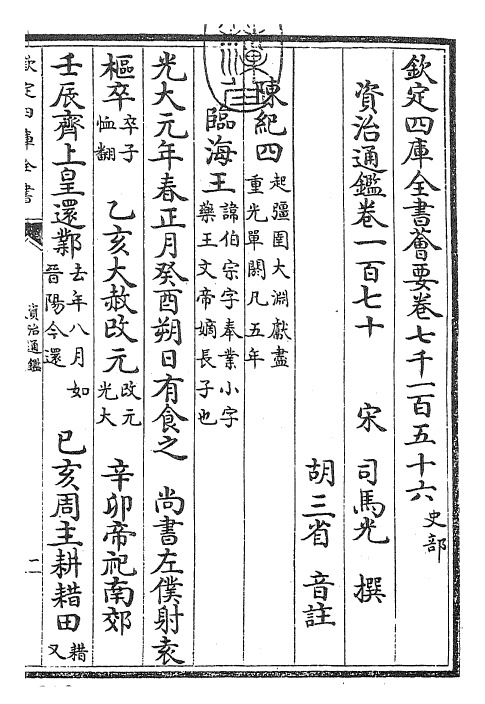 欽定四庫全書薈要卷七千一百五十六
史部
資治通鑑卷一百七十
宋 司馬光 撰
胡三省 音註
陳紀四
起彊圉大淵獻盡
重光單閼凡五年
臨海王
諱伯宗字奉業小字
藥王文帝嫡長子也
光大元年春正月癸酉朔日有食之 尚書左僕射袁
樞卒
卒子
恤翻
乙亥大赦改元
改元
光大
辛卯帝祀南郊
壬辰齊上皇還鄴
去年八月如
晉陽今還
己亥周主耕耤田
耤
又
欽定四庫全書
資治通鑑
二